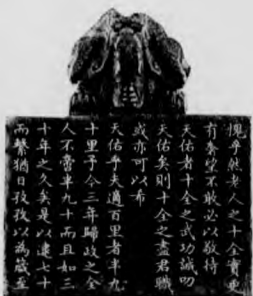 愧乎然老人之十全實更
有奢望不敢必以敬待
天佑者十全之武功誠叨
天佑矣則十全之盡君職
或亦可以希
天佑乎夫適百里者半九
十里予今三年歸政之全
人不啻半九十而且如三
十年之久矣是以逮七十
而繫猶日孜孜以為箴至